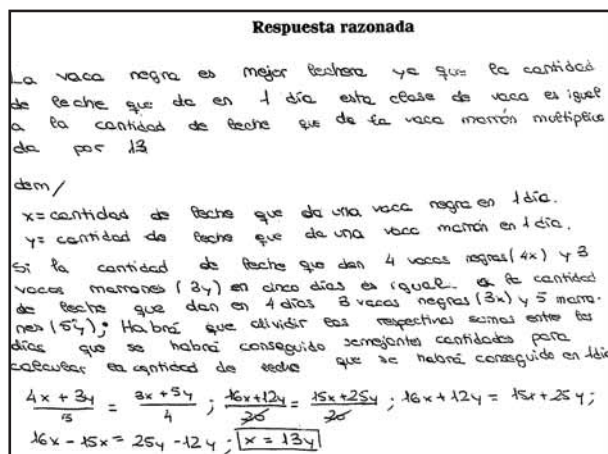 Respuesta razonada
La vaca negra es mejor lechera ya que la cantidad
de leche que da en 1 día esta clase de vaca es igual
a la cantidad de leche que da la vaca marrón multiplica
da por 13
dem/
x=cantidad de leche que da una vaca negra en 1 día.
y= cantidad de leche que da una vaca marrón en 1 día.
Si la cantidad de leche que dan 4 vacas negras (4x) y 3
vacas marrones (3y) en cinco días es igual a la cantidad
de leche que dan en 4 días 3 vacas negras (3x) y 5 marro-
nes (5y); Habrá que dividir las respectivas sumas entre los
días que se habrá conseguido semejantes cantidades para
calcular la cantidad de leche que se habrá conseguido en 1 día
(4x + 3y)/5 = (3x + 5y)/4 ; (16x+12y)/20 = (15x+25y)/20 ; 16x + 12y = 15x + 25y ;
16x - 15x = 25y - 12y ; x = 13y